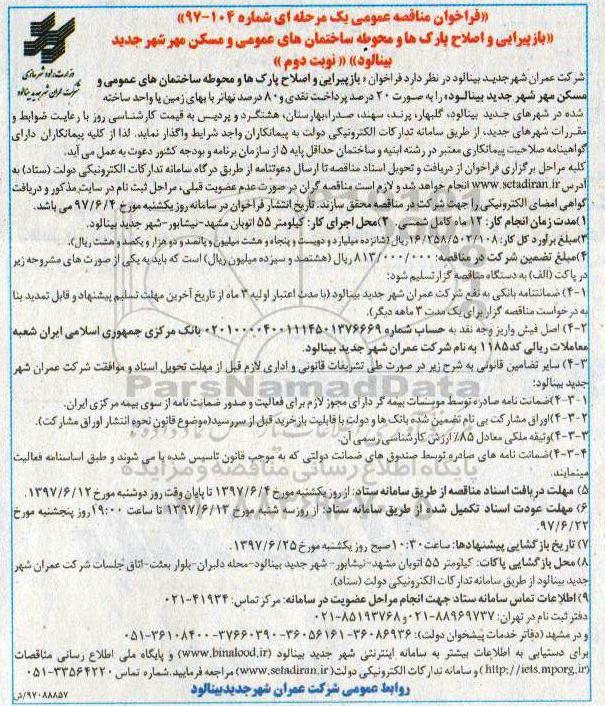 «فراخوان مناقصه عمومی یک مرحله ای شماره ۱۰۴-۹۷»
«بازپیرایی و اصلاح پارک ها و محوطه ساختمان های عمومی و مسکن مهر شهر جدید
بینالود» « نوبت دوم »
وزارت راه و شهرسازی
شرکت عمران شهر جدید بینالود
شرکت عمران شهر جدید بینالود در نظر دارد فراخوان «بازپیرایی و اصلاح پارک ها و محوطه ساختمان های عمومی و
مسکن مهر شهر جدید بینالود» را به صورت ۲۰ درصد پرداخت نقدی و ۸۰ درصد تهاتر با بهای زمین یا واحد ساخته
شده در شهرهای جدید بینالود، گلبهار، پرند، سهند، صدرا، بهارستان، هشتگرد و پردیس به قیمت کارشناسی روز با رعایت ضوابط و
مقررات شهرهای جدید، از طریق سامانه تدارکات الکترونیکی دولت به پیمانکاران واجد شرایط واگذار نماید. لذا از کلیه پیمانکاران دارای
گواهینامه صلاحیت پیمانکاری معتبر در رشته ابنیه و ساختمان حداقل پایه ۵ از سازمان برنامه و بودجه کشور دعوت به عمل می آید.
کلیه مراحل برگزاری فراخوان از دریافت و تحویل اسناد مناقصه تا ارسال دعوتنامه از طریق درگاه سامانه تدارکات الکترونیکی دولت (ستاد) به
آدرس www.setadiran.ir انجام خواهد شد و لازم است مناقصه گران در صورت عدم عضویت قبلی، مراحل ثبت نام در سایت مذکور و دریافت
گواهی امضای الکترونیکی را جهت شرکت در مناقصه محقق سازند. تاریخ انتشار فراخوان در سامانه روز یکشنبه مورخ ۹۷/۶/۴ می باشد.
۱)مدت زمان انجام کار: ۱۲ ماه کامل شمسی ۲)محل اجرای کار: کیلومتر ۵۵ اتوبان مشهد-نیشابور- شهر جدید بینالود.
۳)مبلغ برآورد کل کار: ۱۶/۲۵۸/۵۰۲/۱۰۸ ریال (شانزده میلیارد و دویست و پنجاه و هشت میلیون و پانصد و دو هزار و یکصد و هشت ریال).
۴) مبلغ تضمین شرکت در مناقصه: ۸۱۳/۰۰۰/۰۰۰ ریال (هشتصد و سیزده میلیون ریال) است که باید به یکی از صورت های مشروحه زیر
در پاکت (الف) به دستگاه مناقصه گزار تسلیم شود:
۴-۱) ضمانتنامه بانکی به نفع شرکت عمران شهر جدید بینالود (با مدت اعتبار اولیه ۳ ماه از تاریخ آخرین مهلت تسلیم پیشنهاد و قابل تمدید بنا
به درخواست مناقصه گزار برای یک مدت ۳ ماهه دیگر).
۴-۲) اصل فیش واریز وجه نقد به حساب شماره ۰۲۰۱۰۰۰۰۴۰۰۱۱۱۴۵۰۱۳۷۶۶۶۹ بانک مرکزی جمهوری اسلامی ایران شعبه
معاملات ریالی کد ۱۱۸۵ به نام شرکت عمران شهر جدید بینالود.
۴-۳) سایر تضامین قانونی به شرح زیر در صورت طی تشریفات قانونی و اداری لازم قبل از مهلت تحویل اسناد و موافقت شرکت عمران شهر
جدید بینالود:
۴-۳-۱)ضمانت نامه صادره توسط موسسات بیمه گر دارای مجوز لازم برای فعالیت و صدور ضمانت نامه از سوی بیمه مرکزی ایران.
۴-۳-۲)اوراق مشارکت بی نام تضمین شده بانک ها و دولت با قابلیت بازخرید قبل از سررسید(موضوع قانون نحوه انتشار اوراق مشارکت).
۴-۳-۳)وثیقه ملکی معادل ۸۵٪ ارزش کارشناسی رسمی آن.
۴-۳-۴)ضمانت نامه های صادره توسط صندوق های ضمانت دولتی که به موجب قانون تاسیس شده یا می شوند و طبق اساسنامه فعالیت
مینمایند.
۵) مهلت دریافت اسناد مناقصه از طریق سامانه ستاد: از روز یکشنبه مورخ ۱۳۹۷/۶/۴ تا پایان وقت روز دوشنبه مورخ ۱۳۹۷/۶/۱۲.
۶) مهلت عودت اسناد تکمیل شده از طریق سامانه ستاد: از روز سه شنبه مورخ ۱۳۹۷/۶/۱۳ تا ساعت ۱۹:۰۰ روز پنجشنبه مورخ
۹۷/۶/۲۲.
۷) تاریخ بازگشایی پیشنهادها: ساعت ۱۰:۳۰ صبح روز یکشنبه مورخ ۱۳۹۷/۶/۲۵.
۸) محل بازگشایی پاکات: کیلومتر ۵۵ اتوبان مشهد-نیشابور- شهر جدید بینالود-محله دلبران-بلوار بعثت-اتاق جلسات شرکت عمران شهر
جدید بینالود از طریق سامانه تدارکات الکترونیکی دولت (ستاد).
۹) اطلاعات تماس سامانه ستاد جهت انجام مراحل عضویت در سامانه: مرکز تماس: ۴۱۹۳۴-۰۲۱
دفتر ثبت نام در تهران: ۸۸۹۶۹۷۳۷-۰۲۱ و ۸۵۱۹۳۷۶۸-۰۲۱
و در مشهد (دفاتر خدمات پیشخوان دولت): ۳۶۰۸۶۹۳۶-۳۶۰۵۶۱۶۱-۳۷۶۶۰۳۹۰-۳۶۱۰۸۴۰۰-۰۵۱
برای دستیابی به اطلاعات بیشتر به سامانه اینترنتی شهر جدید بینالود (www.binalood.ir) و پایگاه ملی اطلاع رسانی مناقصات
(http://iets.mporg.ir) و سامانه تدارکات الکترونیکی دولت (www.setadiran.ir) مراجعه فرمایید. شماره تماس ۳۳۵۶۴۲۲۰-۰۵۱
روابط عمومی شرکت عمران شهر جدید بینالود
۹۷۰۸۸۸۵۷/ش
ParsNamadData
پایگاه اطلاع رسانی مناقصه و مزایده